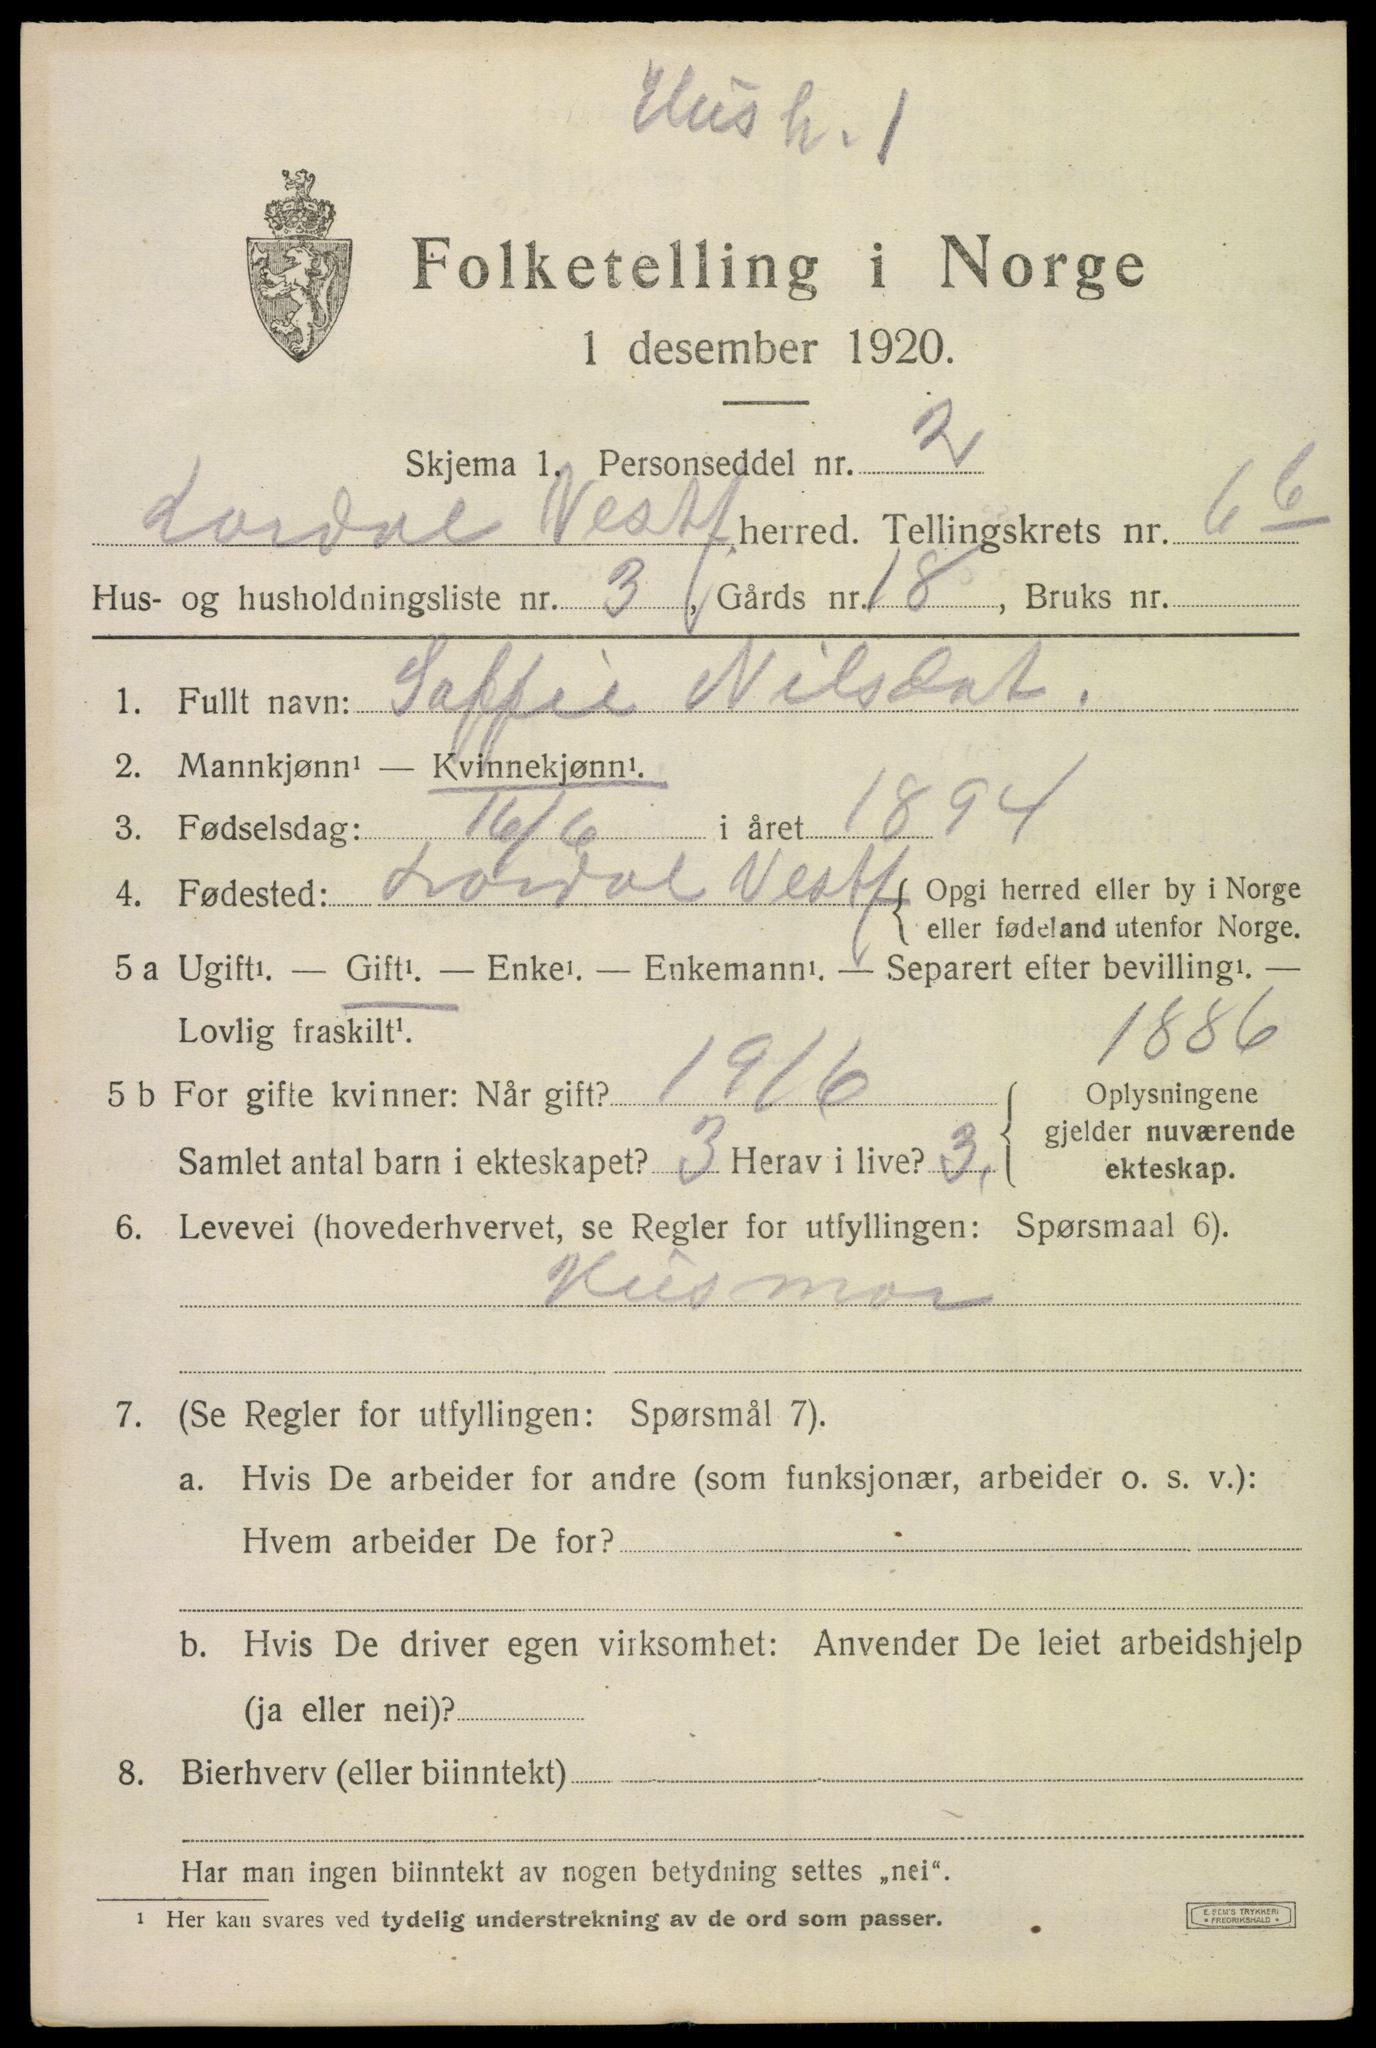 Hush. 1
Folketelling i Norge
1 desember 1920.
Skjema 1. Personseddel nr. 2
Lardal Vestf. herred. Tellingskrets nr. 6 6
Hus- og husholdningsliste nr. 3, Gårds nr. 18, Bruks nr.
1. Fullt navn: Saffie Nilsdat.
2. Mannkjønn¹ — Kvinnekjønn¹.
3. Fødselsdag: 16/6 i året 1894
4. Fødested: Lardal Vestf { Opgi herred eller by i Norge
eller fødeland utenfor Norge.
5 a Ugift¹. — Gift¹. — Enke¹. — Enkemann¹. — Separert efter bevilling¹. —
Lovlig fraskilt¹.
1886
5 b For gifte kvinner: Når gift? 1916 Oplysningene
gjelder nuværende
Samlet antal barn i ekteskapet? 3 Herav i live? 3. ekteskap.
6. Levevei (hovederhvervet, se Regler for utfyllingen: Spørsmaal 6).
Husmor
7. (Se Regler for utfyllingen: Spørsmål 7).
a. Hvis De arbeider for andre (som funksjonær, arbeider o. s. v.):
Hvem arbeider De for?
b. Hvis De driver egen virksomhet: Anvender De leiet arbeidshjelp
(ja eller nei)?
8. Bierhverv (eller biinntekt)
Har man ingen biinntekt av nogen betydning settes „nei“.
¹ Her kan svares ved tydelig understrekning av de ord som passer.
E. SEM'S TRYKKERI
• FREDRIKSHALD •